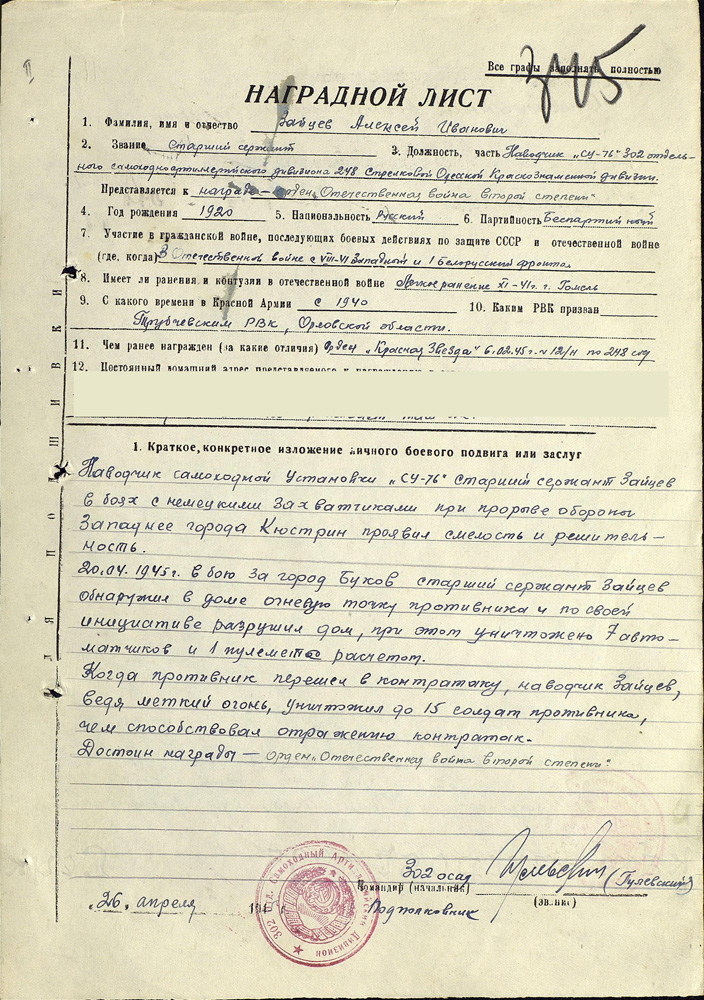 Все графы заполнять полностью
НАГРАДНОЙ ЛИСТ
1. Фамилия, имя и отчество Зайцев Алексей Иванович
2. Звание Старший сержант 3. Должность, часть Наводчик „СУ-76" 302 отдель-
ного самоходноартиллерийского дивизиона 248 Стрелковой Одесской Краснознаменной дивизии.
Представляется к награде — орден „Отечественная война второй степени"
4. Год рождения 1920 5. Национальность Русский 6. Партийность Беспартийный
7. Участие в гражданской войне, последующих боевых действиях по защите СССР и отечественной войне
(где, когда) В Отечественной войне с Западный и 1 Белорусский фронтах
8. Имеет ли ранения и контузии в отечественной войне Легкое ранение XI-41г. г. Гомель
9. С какого времени в Красной Армии с 1940 10. Каким РВК призван
Трубчевским РВК, Орловской области.
11. Чем ранее награжден (за какие отличия) Орден „Красная Звезда" 6.02.45г. №12/н по 248 сд
12. Постоянный домашний адрес представляемого к
1. Краткое, конкретное изложение личного боевого подвига или заслуг
Наводчик самоходной установки „СУ-76" старший сержант Зайцев
в боях с немецкими захватчиками при прорыве обороны
западнее города Кюстрин проявил смелость и решитель-
ность.
20.04.1945г. в бою за город Буков старший сержант Зайцев
обнаружил в доме огневую точку противника и по своей
инициативе разрушил дом, при этом уничтожено 7 авто-
матчиков и 1 пулемет с расчетом.
Когда противник перешел в контратаку, наводчик Зайцев,
ведя меткий огонь, уничтожил до 15 солдат противника,
чем способствовал отражению контратак.
Достоин награды — орден „Отечественная война второй степени".
302 осад
Командир (начальник) (Гулевский)
„26„ апреля 194 Подполковник (звание)
302 Самоходный Артиллерийский Дивизион
ДЛЯ ПОДШИВКИ